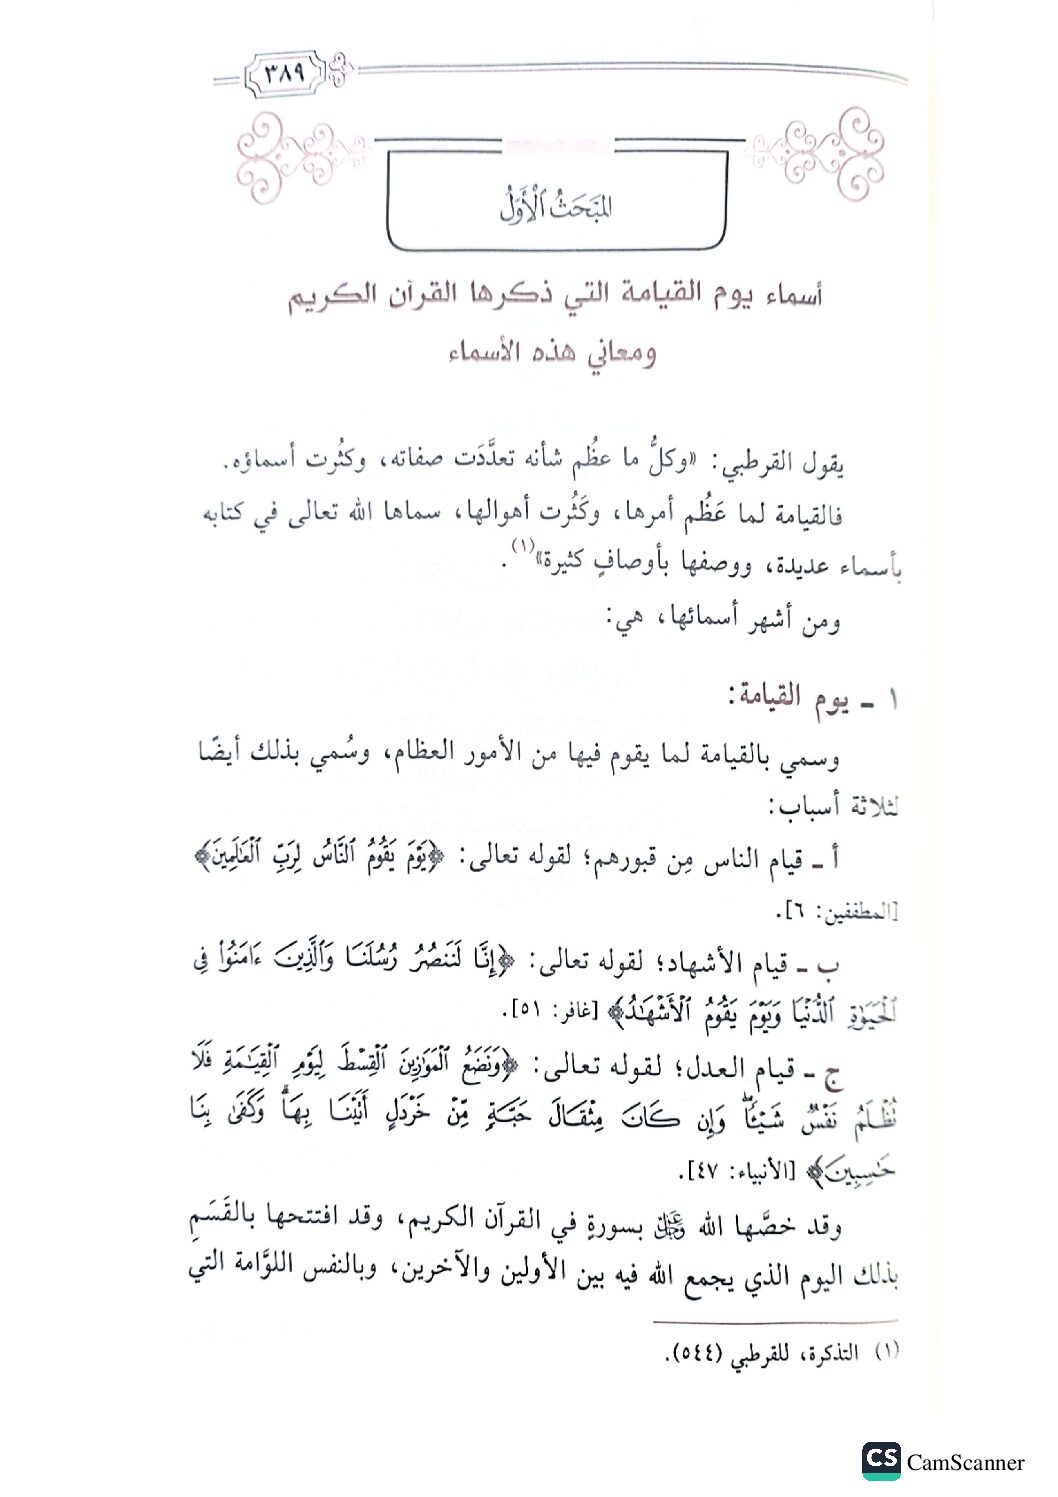 ٣٨٩
المَبْحَثُ ٱلْأَوَّلُ
أسماء يوم القيامة التي ذكرها القرآن الكريم
ومعاني هذه الأسماء
يقول القرطبي: «وكلُّ ما عظُم شأنه تعدَّدَت صفاته، وكثُرت أسماؤه.
فالقيامة لما عَظُم أمرها، وكَثُرت أهوالها، سماها الله تعالى في كتابه
بأسماء عديدة، ووصفها بأوصافٍ كثيرة»(١).
ومن أشهر أسمائها، هي:
١ ـ يوم القيامة:
وسمي بالقيامة لما يقوم فيها من الأمور العظام، وسُمي بذلك أيضًا
لثلاثة أسباب:
أ ـ قيام الناس مِن قبورهم؛ لقوله تعالى: ﴿يَوْمَ يَقُومُ ٱلنَّاسُ لِرَبِّ ٱلْعَٰلَمِينَ﴾
[المطففين: ٦].
ب ـ قيام الأشهاد؛ لقوله تعالى: ﴿إِنَّا لَنَنصُرُ رُسُلَنَا وَٱلَّذِينَ ءَامَنُوا۟ فِى
ٱلْحَيَوٰةِ ٱلدُّنْيَا وَيَوْمَ يَقُومُ ٱلْأَشْهَٰدُ﴾ [غافر: ٥١].
ج ـ قيام العدل؛ لقوله تعالى: ﴿وَنَضَعُ ٱلْمَوَٰزِينَ ٱلْقِسْطَ لِيَوْمِ ٱلْقِيَٰمَةِ فَلَا
تُظْلَمُ نَفْسٌ شَيْـًٔا ۖ وَإِن كَانَ مِثْقَالَ حَبَّةٍ مِّنْ خَرْدَلٍ أَتَيْنَا بِهَا ۗ وَكَفَىٰ بِنَا
حَٰسِبِينَ﴾ [الأنبياء: ٤٧].
وقد خصَّها الله ﷿ بسورةٍ في القرآن الكريم، وقد افتتحها بالقَسَمِ
بذلك اليوم الذي يجمع الله فيه بين الأولين والآخرين، وبالنفس اللوَّامة التي
(١) التذكرة، للقرطبي (٥٤٤).
CS CamScanner